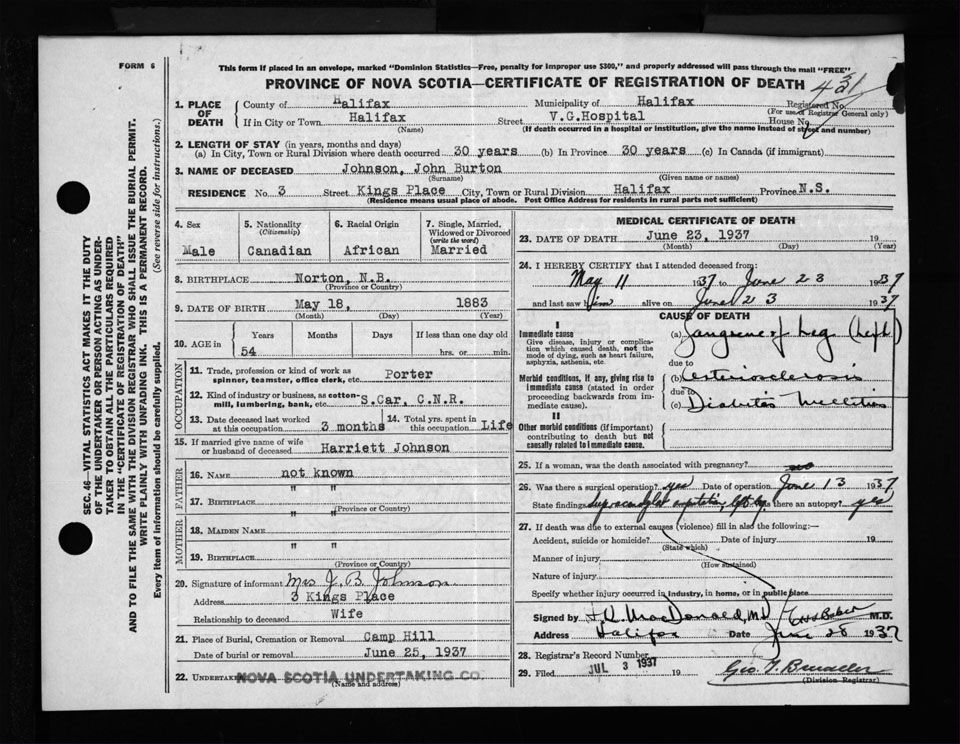 FORM 6
This form if placed in an envelope, marked "Dominion Statistics—Free, penalty for improper use $300," and properly addressed will pass through the mail "FREE"
PROVINCE OF NOVA SCOTIA—CERTIFICATE OF REGISTRATION OF DEATH
431
1. PLACE OF DEATH
County of Halifax Municipality of Halifax Registered No.
(For use of Registrar General only)
If in City or Town Halifax Street V.G.Hospital House No.
(Name) (If death occurred in a hospital or institution, give the name instead of street and number)
2. LENGTH OF STAY (in years, months and days)
(a) In City, Town or Rural Division where death occurred 30 years (b) In Province 30 years (c) In Canada (if immigrant)
3. NAME OF DECEASED Johnson, John Burton
(Surname) (Given name or names)
RESIDENCE No. 3 Street Kings Place City, Town or Rural Division Halifax Province N.S.
(Residence means usual place of abode. Post Office Address for residents in rural parts not sufficient)
4. Sex
Male
5. Nationality
(Citizenship)
Canadian
6. Racial Origin
African
7. Single, Married, Widowed or Divorced
(write the word)
Married
8. BIRTHPLACE Norton, N.B.
(Province or Country)
9. DATE OF BIRTH May 18, 1883
(Month) (Day) (Year)
10. AGE in
Years Months Days If less than one day old
54 hrs. or min.
OCCUPATION
11. Trade, profession or kind of work as
spinner, teamster, office clerk, etc. Porter
12. Kind of industry or business, as cotton-
mill, lumbering, bank, etc. S.Car, C.N.R.
13. Date deceased last worked
at this occupation 3 months
14. Total yrs. spent in
this occupation Life
15. If married give name of wife
or husband of deceased Harriett Johnson
FATHER
16. NAME not known
17. BIRTHPLACE " "
(Province or Country)
MOTHER
18. MAIDEN NAME
19. BIRTHPLACE " "
(Province or Country)
20. Signature of informant Mrs J. B. Johnson
Address 3 Kings Place
Relationship to deceased Wife
21. Place of Burial, Cremation or Removal Camp Hill
Date of burial or removal June 25, 1937
22. UNDERTAKER NOVA SCOTIA UNDERTAKING CO.
(Name and address)
MEDICAL CERTIFICATE OF DEATH
23. DATE OF DEATH June 23, 1937 19
(Month) (Day) (Year)
24. I HEREBY CERTIFY that I attended deceased from:
May 11 1937 to June 23 1937
and last saw him alive on June 23 1937
CAUSE OF DEATH
I
Immediate cause
Give disease, injury or complica-
tion which caused death, not the
mode of dying, such as heart failure,
asphyxia, asthenia, etc.
(a) Gangrene of Leg (left)
due to
Morbid conditions, if any, giving rise to
immediate cause (stated in order
proceeding backwards from im-
mediate cause).
(b) arteriosclerosis
due to
(c) Diabetes Mellitus
II
Other morbid conditions (if important)
contributing to death but not
causally related to immediate cause.
25. If a woman, was the death associated with pregnancy? no
26. Was there a surgical operation? yes Date of operation June 13 1937
State findings left leg Was there an autopsy? yes
27. If death was due to external causes (violence) fill in also the following:—
Accident, suicide or homicide? Date of injury 19
(State which)
Manner of injury
(How sustained)
Nature of injury
Specify whether injury occurred in industry, in home, or in public place
Signed by MacDonald, M.D. M.D.
Address Halifax Date June 28 1937
28. Registrar's Record Number
29. Filed JUL 3 1937 19
(Division Registrar)
SEC. 46—VITAL STATISTICS ACT MAKES IT THE DUTY
OF THE UNDERTAKER OR PERSON ACTING AS UNDER-
TAKER TO OBTAIN ALL THE PARTICULARS REQUIRED
IN THE "CERTIFICATE OF REGISTRATION OF DEATH"
AND TO FILE THE SAME WITH THE DIVISION REGISTRAR WHO SHALL ISSUE THE BURIAL PERMIT.
WRITE PLAINLY WITH UNFADING INK. THIS IS A PERMANENT RECORD.
Every item of information should be carefully supplied. (See reverse side for instructions.)